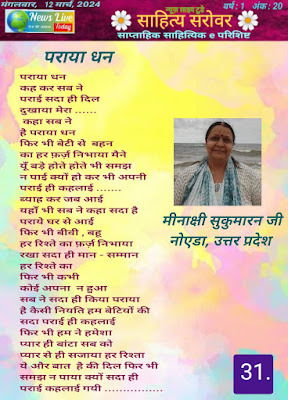 मंगलवार, 12 मार्च, 2024
वर्ष : 1 अंक : 20
News Live
Today
न्यूज़ लाइव टुडे
साहित्य सरोवर
साप्ताहिक साहित्यिक e परिशिष्ट
पराया धन
पराया धन
कह कर सब ने
पराई सदा ही दिल
दुखाया मेरा ......
कहा सब ने
है पराया धन
फिर भी बेटी से बहन
का हर फ़र्ज़ निभाया मैने
यूँ बड़े होते होते भी समझ
न पाई क्यों हो कर भी अपनी
पराई ही कहलाई .......
ब्याह कर जब आई
यहाँ भी सब ने कहा सदा है
पराये घर से आई
फिर भी बीवी , बहु
हर रिश्ते का फ़र्ज़ निभाया
रखा सदा ही मान - सम्मान
हर रिश्ते का
फिर भी कभी
कोई अपना न हुआ
सब ने सदा ही किया पराया
है कैसी नियति हम बेटियों की
सदा पराई ही कहलाई
फिर भी हम ने हमेशा
प्यार ही बांटा सब को
प्यार से ही सजाया हर रिश्ता
ये और बात है की दिल फिर भी
समझ न पाया क्यों सदा ही
पराई कहलाई गयी ................
मीनाक्षी सुकुमारन जी
नोएडा, उत्तर प्रदेश
31.